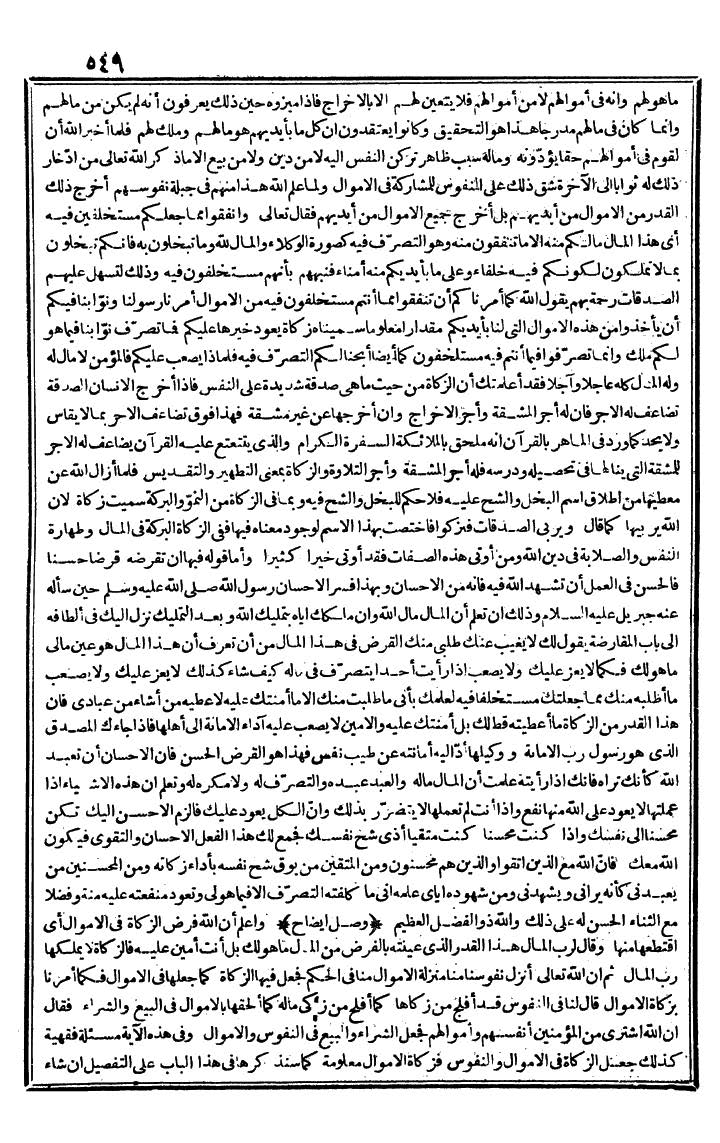 ٥٤٩
ماهولهم وانه فى أموالهم لامن أموالهم فلا يتعين لهم الا بالاخراج فاذا ميزوه حين ذلك يعرفون أنه لم يكن من مالهم
وانما كان فى مالهم مدرجا هذا هو التحقيق وكانوا يعتقدون ان كل ما بأيديهم هو مالهم وملك لهم فلما أخبر الله أن
لقوم فى أموالهم حقا يؤدّونه وماله سبب ظاهر تركن النفس اليه لا من دين ولا من بيع الا ماذ كر الله تعالى من ادّخار
ذلك له ثوابا الى الآخرة شق ذلك على النفوس للمشاركة فى الاموال ولما علم الله هذا منهم فى جبلة نفوسهم أخرج ذلك
القدر من الاموال من أيديهم بل أخرج جميع الاموال من أيديهم فقال تعالى وانفقوا مما جعلكم مستخلفين فيه
أى هذا المال مالكم منه الا ما تنفقون منه وهو التصرّف فيه كصورة الوكلاء والمال لله وما تبخلون به فانكم تبخلون
بما لا تملكون لكونكم فيه خلفاء وعلى ما بأيديكم منه أمناء فنبههم بأنهم مستخلفون فيه وذلك لتسهل عليهم
الصدقات رحمة بهم يقول الله كما أمرناكم أن تنفقوا مما أنتم مستخلفون فيه من الاموال أمرنا رسولنا ونوّابنا فيكم
أن يأخذوا من هذه الاموال التى لنا بأيديكم مقدارا معلوما سميناه زكاة يعود خيرها عليكم فما تصرّف نوّابنا فيما هو
لكم ملك وانما تصرّفوا فيما أنتم فيه مستلخفون كما أيضا أبحنا لكم التصرّف فيه فلماذا يصعب عليكم فالمؤمن لا مال له
وله المال كله عاجلا وآجلا فقد أعلمتك أن الزكاة من حيث ماهى صدقة شديدة على النفس فاذا أخرج الانسان الصدقة
تضاعف له الاجر فان له أجر المشقة وأجر الاخراج وان أخرجها عن غير مشقة فهذا فوق تضاعف الاجر بما لا يقاس
ولا يحد كما ورد فى الماهر بالقرآن انه ملحق بالملائكة السفرة الكرام والذى يتتعتع عليه القرآن يضاعف له الاجر
للمشقة التى ينالها فى تحصيله ودرسه فله أجر المشقة وأجر التلاوة والزكاة بمعنى التطهير والتقديس فلما أزال الله عن
معطيها من اطلاق اسم البخل والشح عليه فلا حكم للبخل والشح فيه وبما فى الزكاة من النموّ والبركة سميت زكاة لان
الله يربيها كما قال ويربى الصدقات فتزكو فاختصت بهذا الاسم لوجود معناه فيها ففى الزكاة البركة فى المال وطهارة
النفس والصلابة فى دين الله ومن أوتى هذه الصفات فقد أوتى خيرا كثيرا وأما قوله فيها ان تقرضه قرضا حسنا
فالحسن فى العمل أن تشهد الله فيه فانه من الاحسان وبهذا فسر الاحسان رسول الله صلى الله عليه وسلم حين سأله
عنه جبريل عليه السلام وذلك ان تعلم أن المال مال الله وان ملكك اياه بتمليك الله وبعد التمليك نزل اليك فى ألطافه
الى باب المقارضة يقول لك لا يغيب عنك طلبى منك القرض فى هذا المال من أن تعرف أن هذا المال هو عين مالى
ماهو لك فكما لا يعز عليك ولا يصعب اذا رأيت أحدا يتصرّف فى ماله كيف شاء كذلك لا يعز عليك ولا يصعب
ما أطلبه منك مما جعلتك مستخلفا فيه لعلمك بأنى ما طلبت منك الا ما أمنتك عليه لاعطيه من أشاء من عبادى فان
هذا القدر من الزكاة ما أعطيته قط لك بل أمنتك عليه والامين لا يصعب عليه آداء الامانة الى أهلها فاذا جاءك المصدق
الذى هو رسول رب الامانة ووكيلها أدّ اليه أمانته عن طيب نفس فهذا هو القرض الحسن فان الاحسان أن تعبد
الله كأنك تراه فانك اذا رأيته علمت أن المال ماله والعبد عبده والتصرّف له ولا مكره له وتعلم ان هذه الاشياء اذا
عملتها لا يعود على الله منها نفع واذا أنت لم تعملها لا يتضرّر بذلك وانّ الكل يعود عليك فالزم الاحسن اليك تكن
محسنا الى نفسك واذا كنت محسنا كنت متقيا أذى شح نفسك فجمع لك هذا الفعل الاحسان والتقوى فيكون
الله معك فانّ الله مع الذين اتقوا والذين هم محسنون ومن المتقين من يوق شح نفسه بأداء زكاته ومن المحسنين من
يعبدنى كأنه يرانى ويشهدنى ومن شهوده اياى علمه انى ما كلفته التصرّف الا فيما هو لى وتعود منفعته عليه منة وفضلا
مع الثناء الحسن له على ذلك والله ذو الفضل العظيم ﴿وصل ايضاح﴾ واعلم أن الله فرض الزكاة فى الاموال أى
اقتطعها منها وقال لرب المال هذا القدر الذى عينته بالفرض من المال ما هو لك بل أنت أمين عليه فالزكاة لا يملكها
رب المال ثم ان الله تعالى أنزل نفوسنا منا منزلة الاموال منا فى الحكم فجعل فيها الزكاة كما جعلها فى الاموال فكما أمرنا
بزكاة الاموال قال لنا فى النفوس قد أفلح من زكاها كما أفلح من زكى ماله كما ألحقها بالاموال فى البيع والشراء فقال
ان الله اشترى من المؤمنين أنفسهم وأموالهم فجعل الشراء والبيع فى النفوس والاموال وفى هذه الآية مسئلة فقهية
كذلك جعل الزكاة فى الاموال والنفوس فزكاة الاموال معلومة كما سنذكرها فى هذا الباب على التفصيل ان شاء